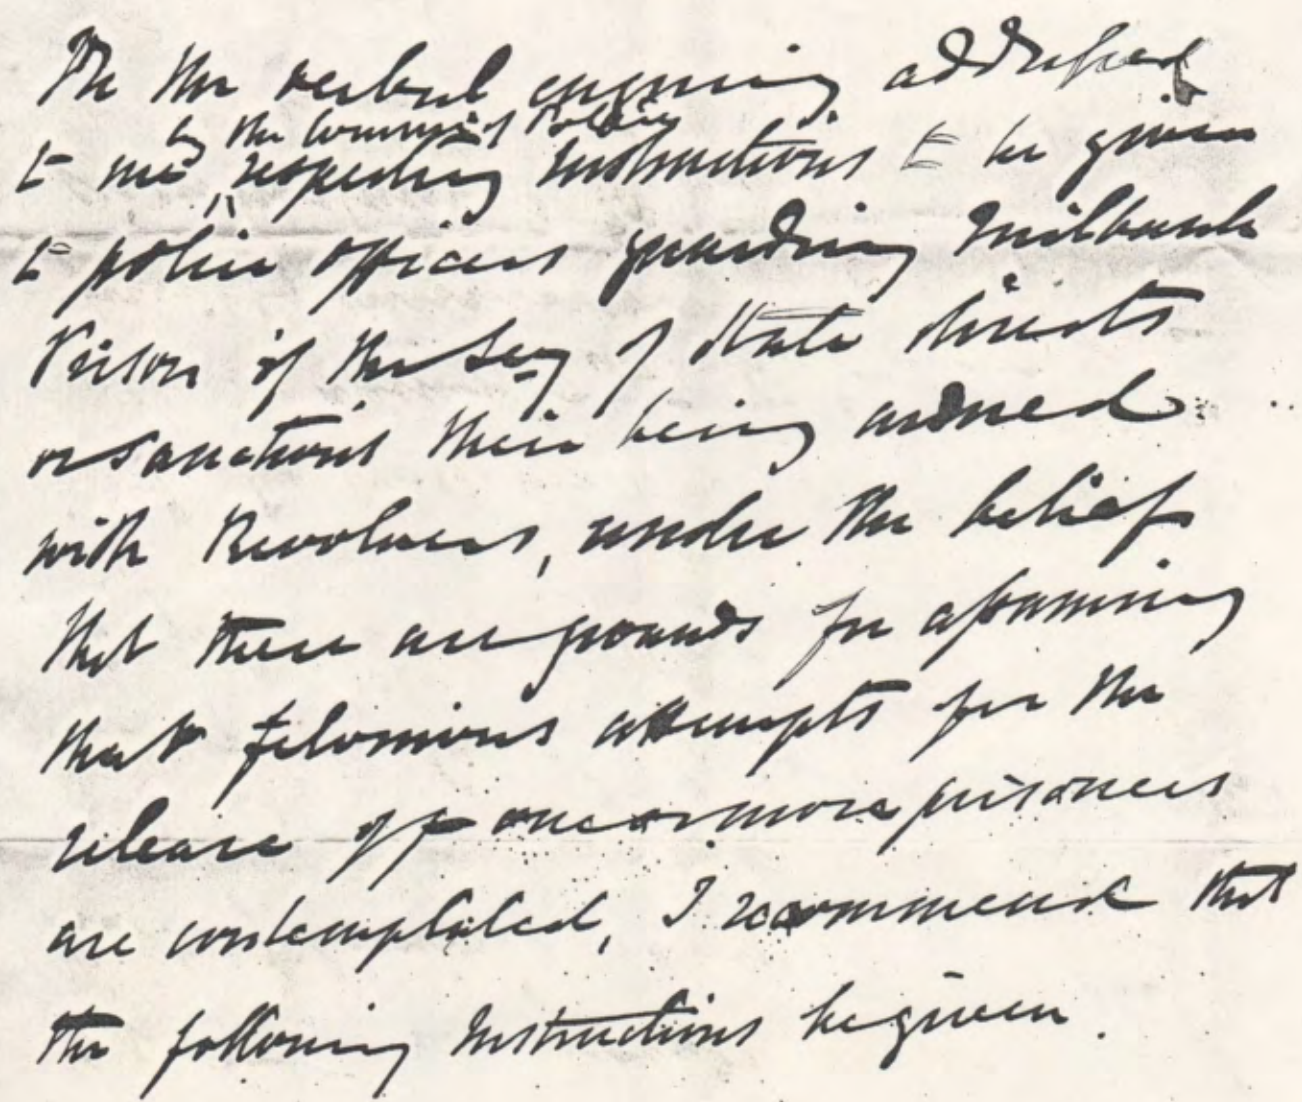 the verbal enquiry addressed
by the Commr of Police
to me respecting instructions to be given
to police officers guarding Milbank
Prison if the Secy of State directs
or sanctions their being armed
with Revolvers, under the belief
that there are grounds for assuming
that felonious attempts for the
release of one or more prisoners
are contemplated, I recommend that
the following Instructions be given.